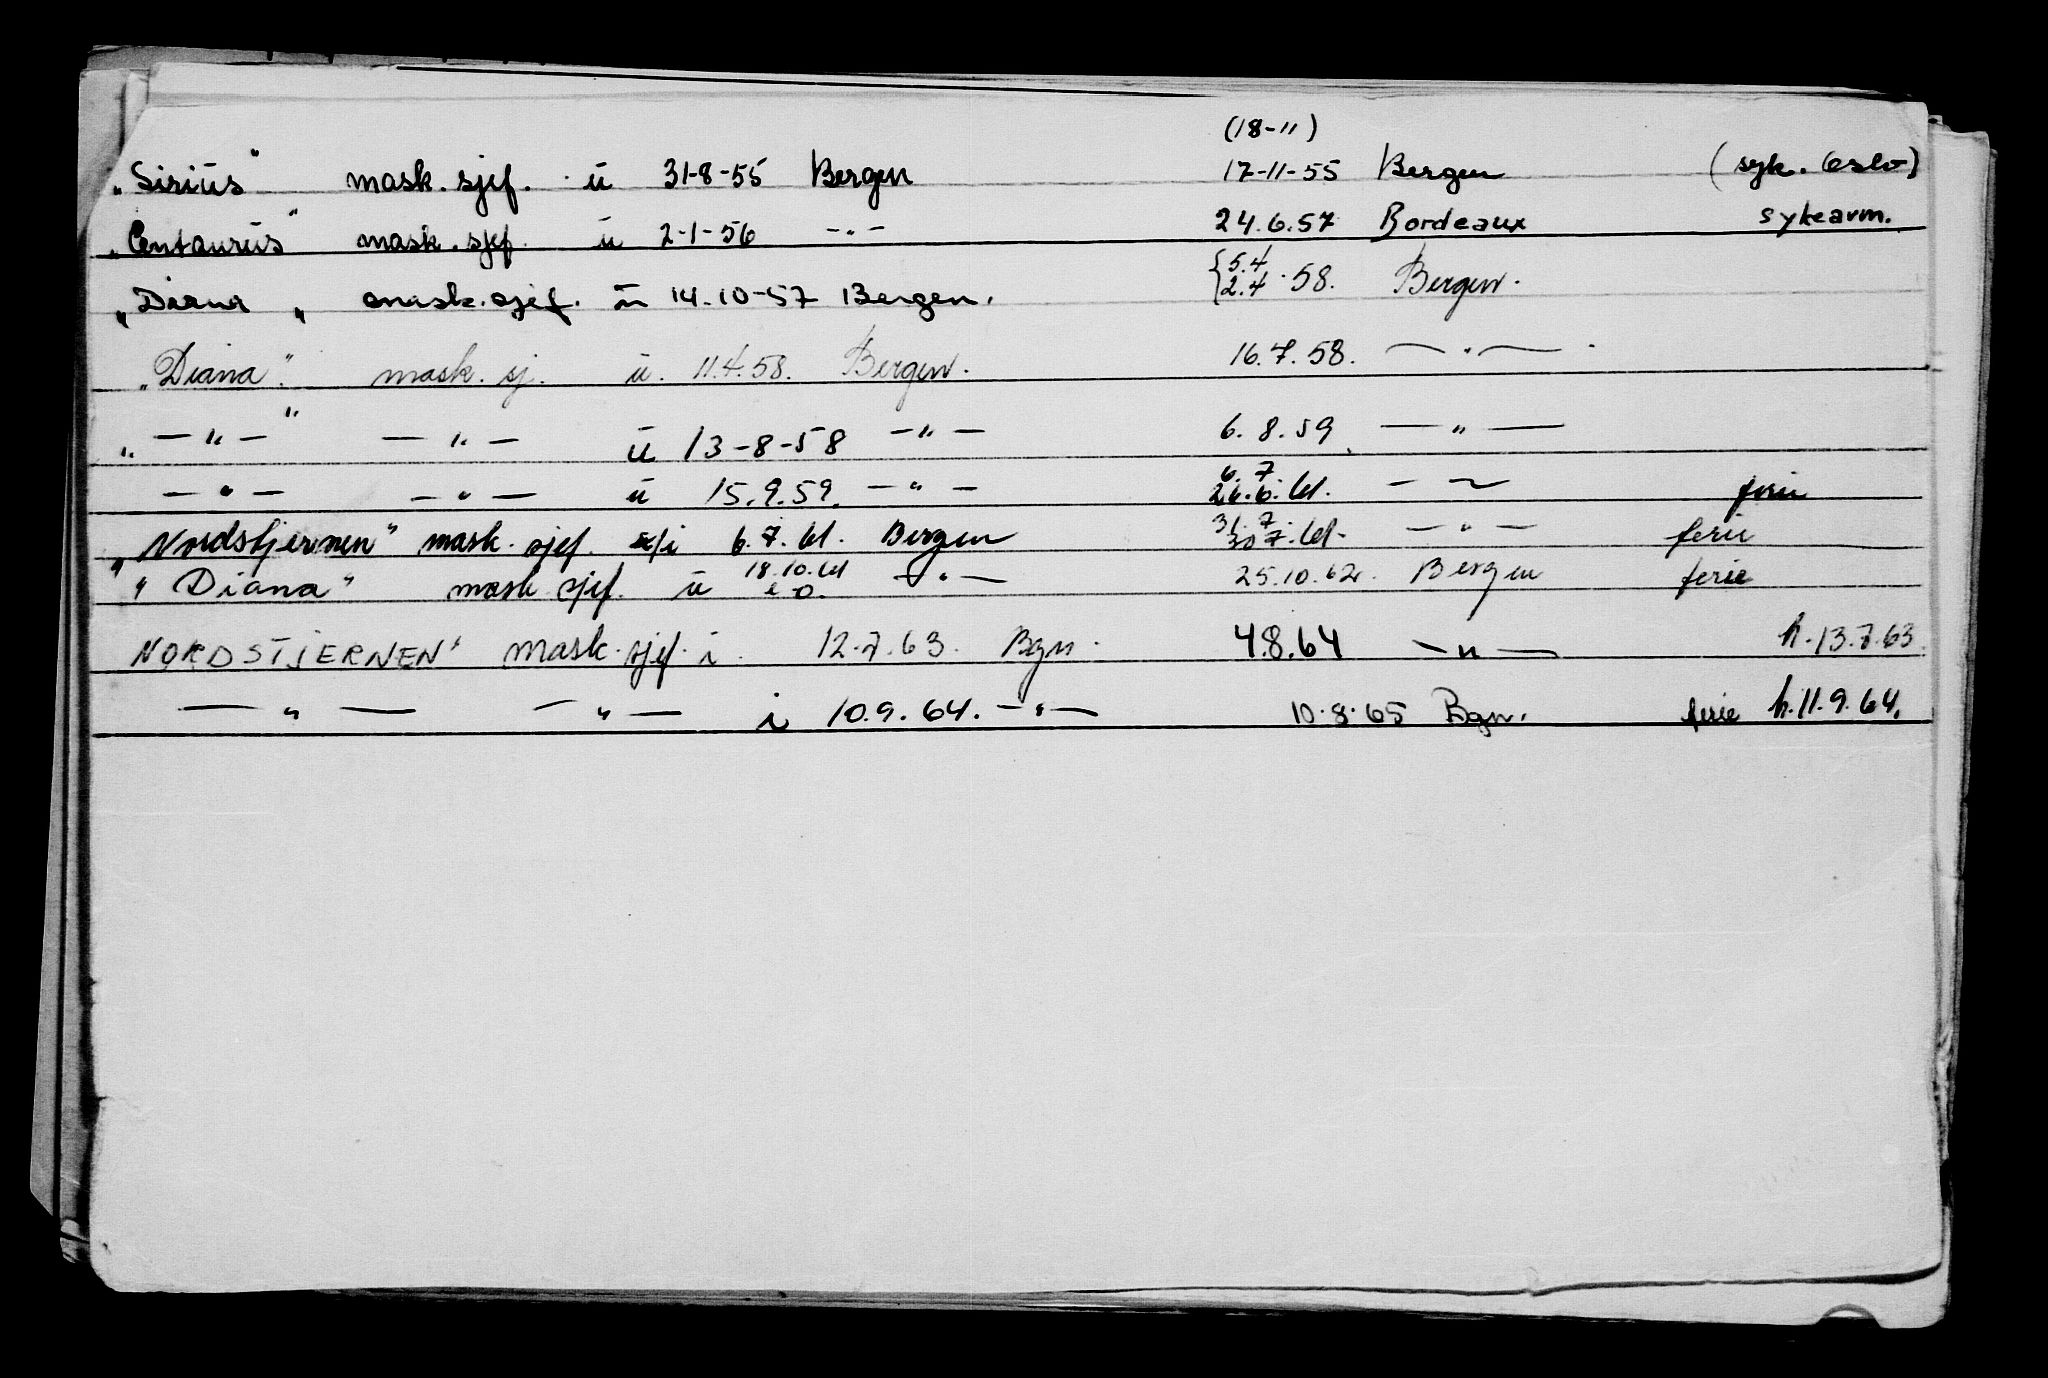 (18-11)
„Sirius" mask. sjef. u 31-8-55 Bergen 17-11-55 Bergen (syk. Oslo)
„Centaurus" mask. sjef. u 2-1-56 -"- 24.6.57 Bordeaux sykeavm.
„Diana" mask. sjef. u 14-10-57 Bergen. {5.4 2.4 .58. Bergen.
„Diana". mask. sj. u. 11.4.58. Bergen. 16.7.58. —"—.
„—"—" —"— u 13-8-58 —"— 6.8.59. —"—
—"— —"— u 15.9.59. —"— 6.7 26.6.61. — ~ ferie
„Nordstjernen" mask. sjef. i 6.7.61. Bergen 31.7. 30 7.61. —"— ferie
"Diana" mask sjef. u 18.10.61 —"— 25.10.62. Bergen ferie
NORDSTJERNEN" mask. sjef. i. 12.7.63. Bgn. 4.8.64 —"— h.13.7.63.
—"— —"— i 10.9.64. —"— 10.8.65 Bgn. ferie h.11.9.64.